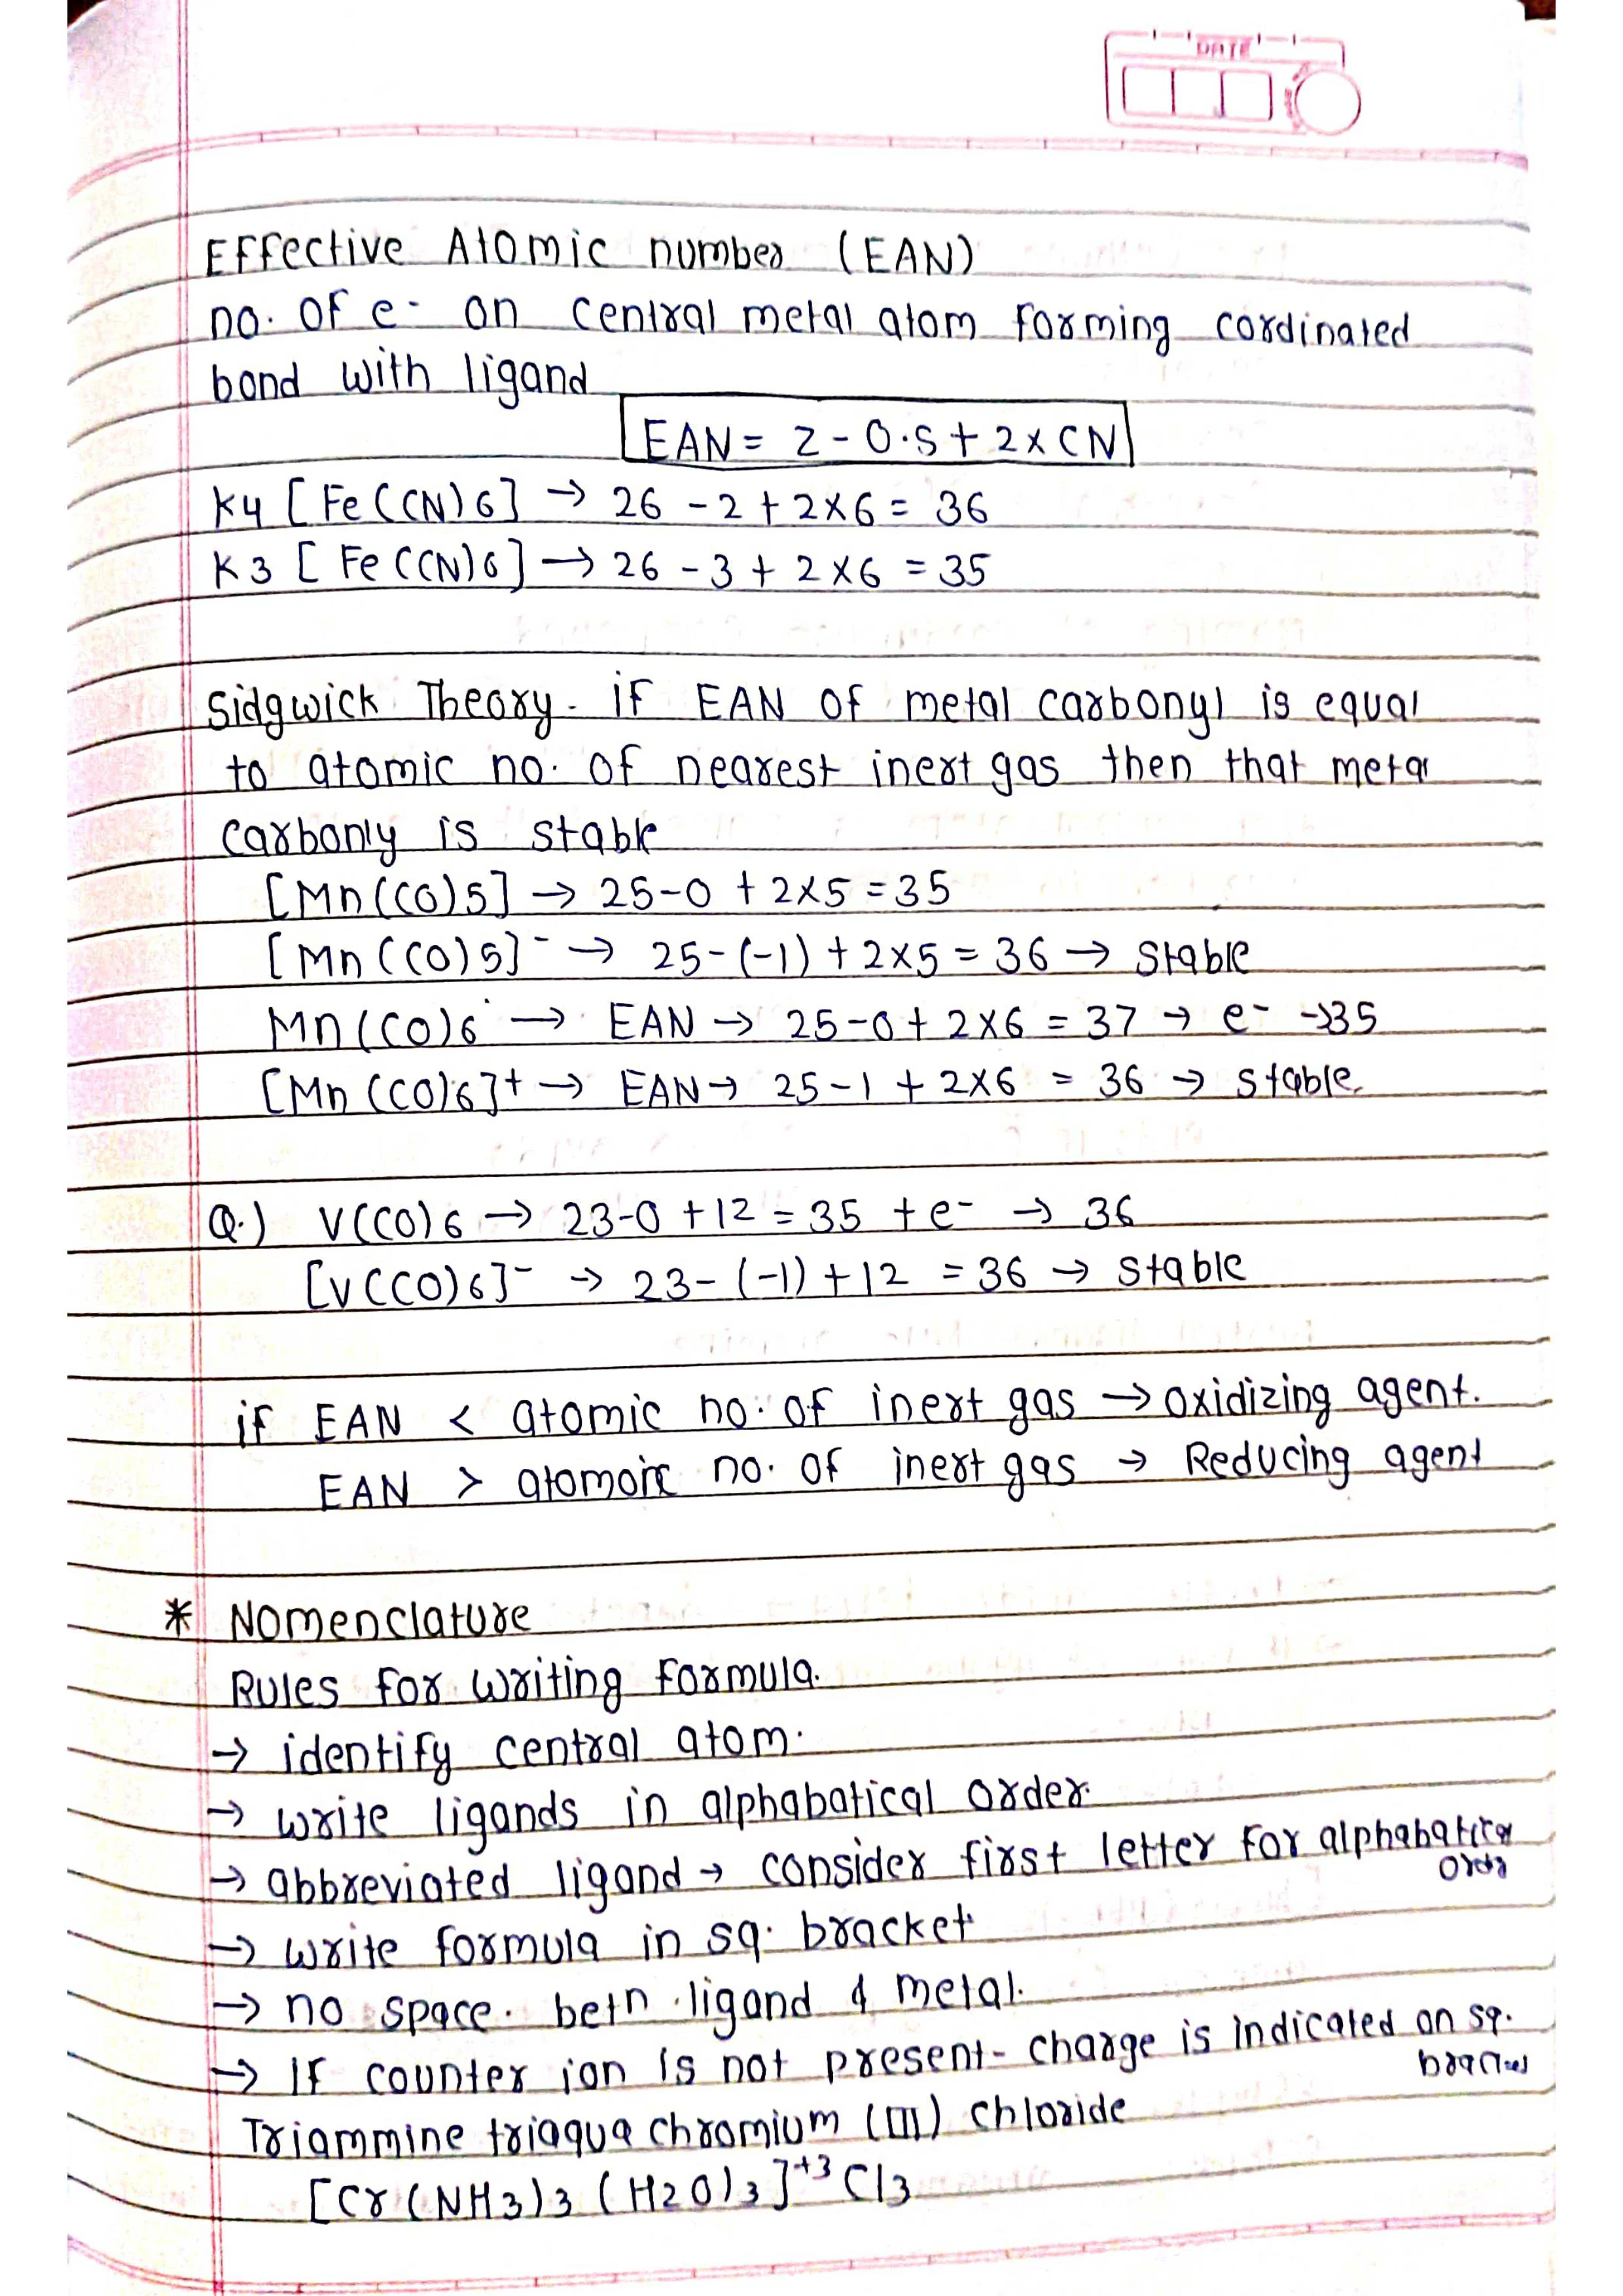 DATE
Effective Atomic number (EAN)
no. of e- on central metal atom forming cordinated
bond with ligand
EAN = Z - O.S + 2 x CN
K4 [Fe(CN)6] → 26 - 2 + 2x6 = 36
K3 [Fe(CN)6] → 26 - 3 + 2x6 = 35
Sidgwick Theory - if EAN of metal carbonyl is equal
to atomic no. of nearest inert gas then that metal
carbonly is stable
[Mn(CO)5] → 25-0 + 2x5 = 35
[Mn(CO)5]- → 25-(-1) + 2x5 = 36 → stable
Mn(CO)6 → EAN → 25-0 + 2x6 = 37 → e- → 35
[Mn(CO)6]+ → EAN → 25-1 + 2x6 = 36 → stable
Q.) V(CO)6 → 23-0 +12 = 35 +e- → 36
[V(CO)6]- → 23-(-1)+12 = 36 → stable
if EAN < atomic no. of inert gas → oxidizing agent.
EAN > atomoic no. of inert gas → Reducing agent
* Nomenclature
Rules for writing formula.
→ identify central atom.
→ write ligands in alphabatical order.
→ abbreviated ligand → consider first letter for alphabatical
order
→ write formula in sq. bracket
→ no space. betn ligand & metal.
→ If counter ion is not present - charge is indicated on sq.
bracket
Triammine triaqua chromium (III) chloride
[Cr(NH3)3 (H2O)3]+3 Cl3